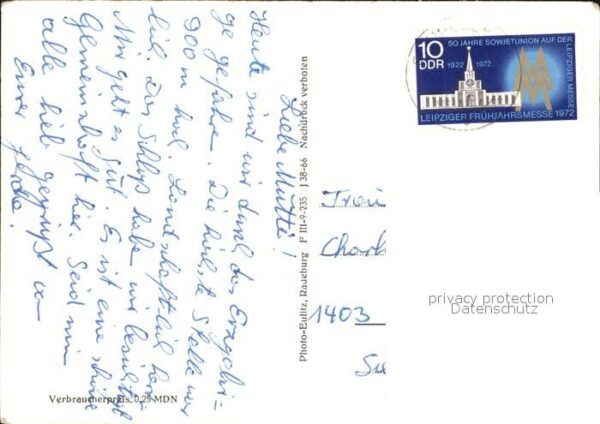 Liebe Mutti!
Heute sind wir durch das Erzgebir-
ge gefahren. Die höchste Stelle war
900 m hoch. Landschaftlich herr-
lich. Das Schloß haben wir besichtigt
Mir geht es gut. Es ist eine schöne
Gemeinschaft hier. Seid nun
alle lieb gegrüßt von
Eurer
Verbraucherpreis: 0,25 MDN
Photo-Eulitz, Radeburg F III-9-235 J 38-66 Nachdruck verboten
50 JAHRE SOWJETUNION AUF DER
LEIPZIGER MESSE
10
DDR 1922 1972
LEIPZIGER FRÜHJAHRSMESSE 1972
Charl
1403
privacy protection
Datenschutz